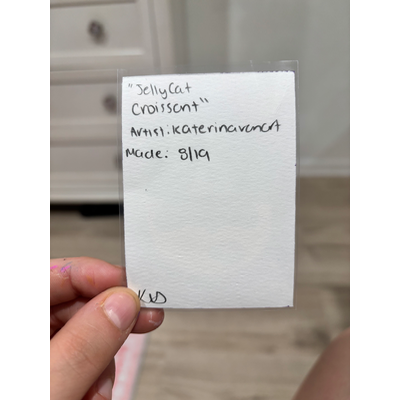 "JellyCat
Croissant"
Artist: Katerinavanart
Made: 8/19